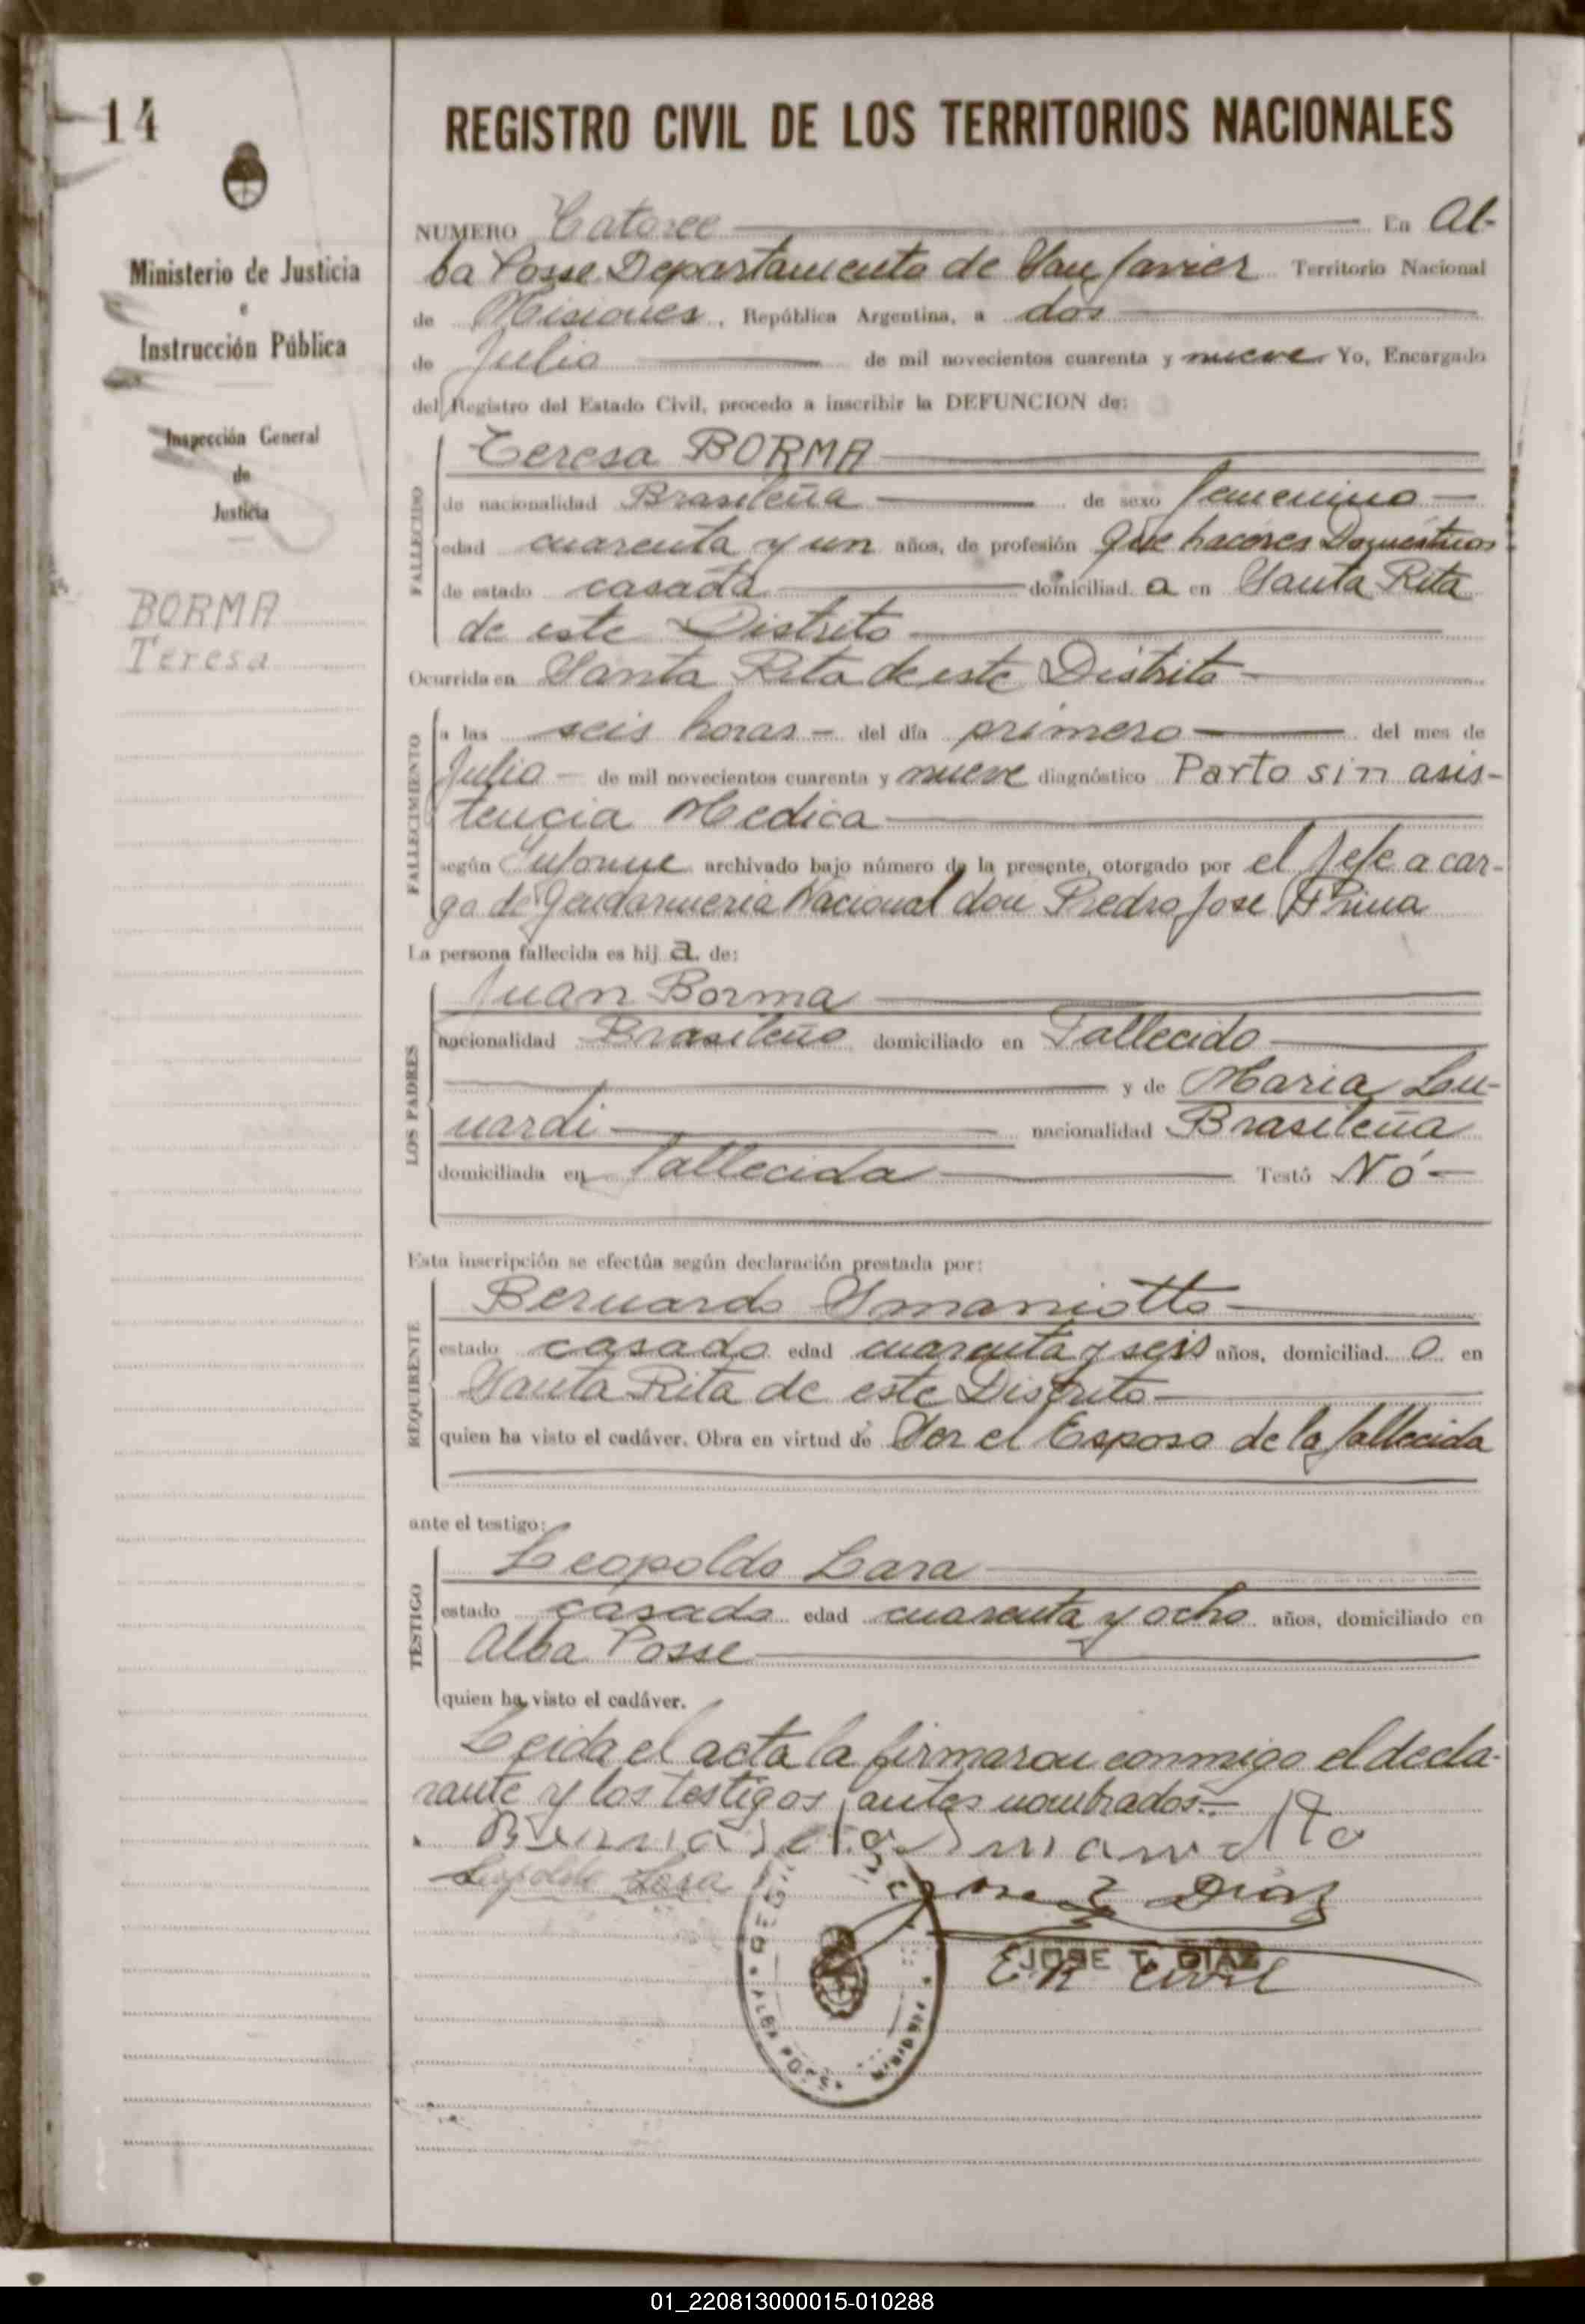 14
REGISTRO CIVIL DE LOS TERRITORIOS NACIONALES
Ministerio de Justicia
e
Instrucción Pública
Inspección General
de
Justicia
BORMA
Teresa
NUMERO Catorce En Al-
ba Posse Departamento de San Javier Territorio Nacional
de Misiones, República Argentina, a dos
de Julio de mil novecientos cuarenta y nueve Yo, Encargado
del Registro del Estado Civil, procedo a inscribir la DEFUNCION de:
FALLECIDO
Teresa BORMA
de nacionalidad Brasileña de sexo femenino
edad cuarenta y un años, de profesión Que haceres Domesticos
de estado casada domiciliad a en Santa Rita
de este Distrito
Ocurrida en Santa Rita de este Distrito
FALLECIMIENTO
a las seis horas - del día primero del mes de
Julio - de mil novecientos cuarenta y nueve diagnóstico Parto sin asis-
tencia Medica
según Informe archivado bajo número de la presente, otorgado por el Jefe a car-
go de Gendarmeria Nacional don Pedro Jose
La persona fallecida es hij a de:
LOS PADRES
Juan Borma
nacionalidad Brasileño domiciliado en Fallecido
y de Maria Lu-
nardi nacionalidad Brasileña
domiciliada en Fallecida Testó Nó -
Esta inscripción se efectúa según declaración prestada por:
REQUIRENTE
Bernardo Smaniotto
estado casado edad cuarenta y seis años, domiciliad o en
Santa Rita de este Distrito
quien ha visto el cadáver. Obra en virtud de Ser el Esposo de la fallecida
ante el testigo:
TESTIGO
Leopoldo Lara
estado casado edad cuarenta y ocho años, domiciliado en
Alba Posse
quien ha visto el cadáver.
Leida el acta la firmaron conmigo el decla-
rante y los testigos antes nombrados.-
Leopoldo Lara
Jose T Diaz
JOSE T. DIAZ
E. R Civil
ALBA POSSE
01_220813000015-010288